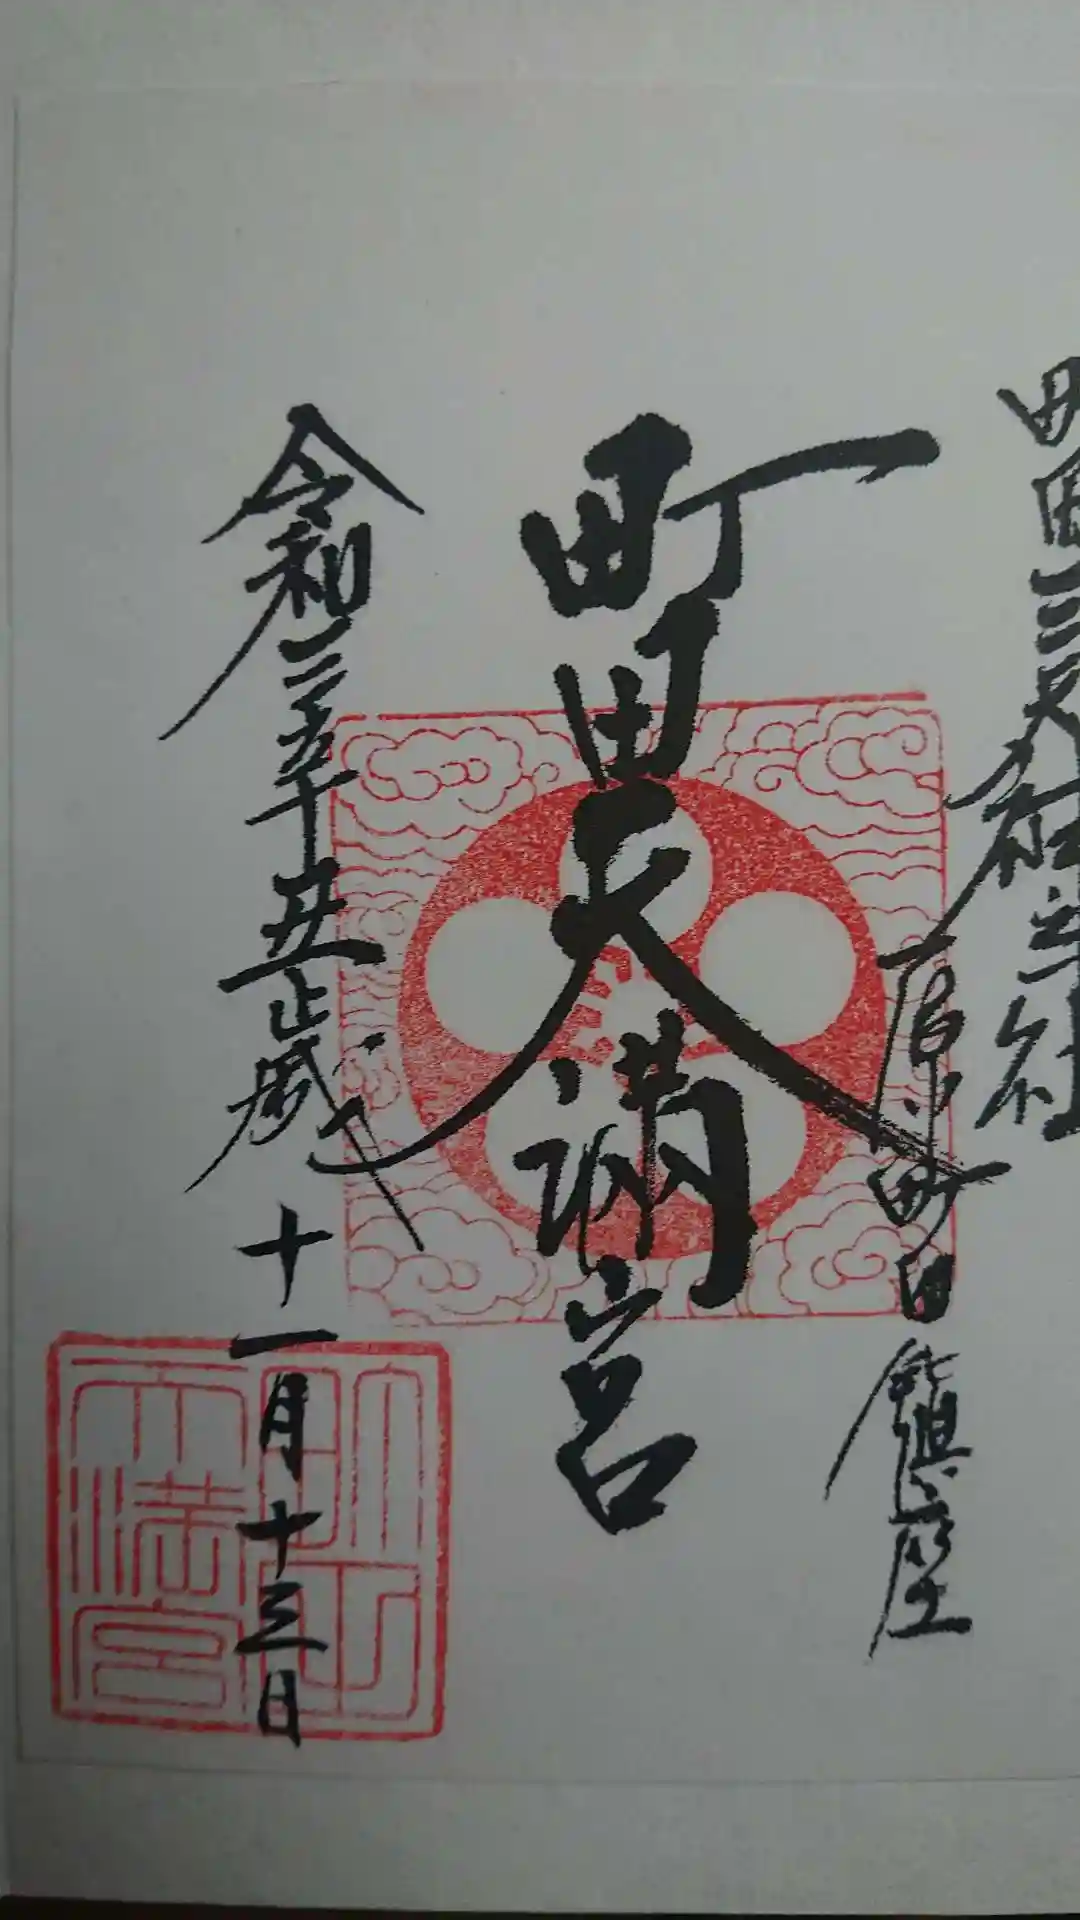 町田三天
原町田鎮座
町田天満宮
令和三年丑歳十一月十三日
天満宮